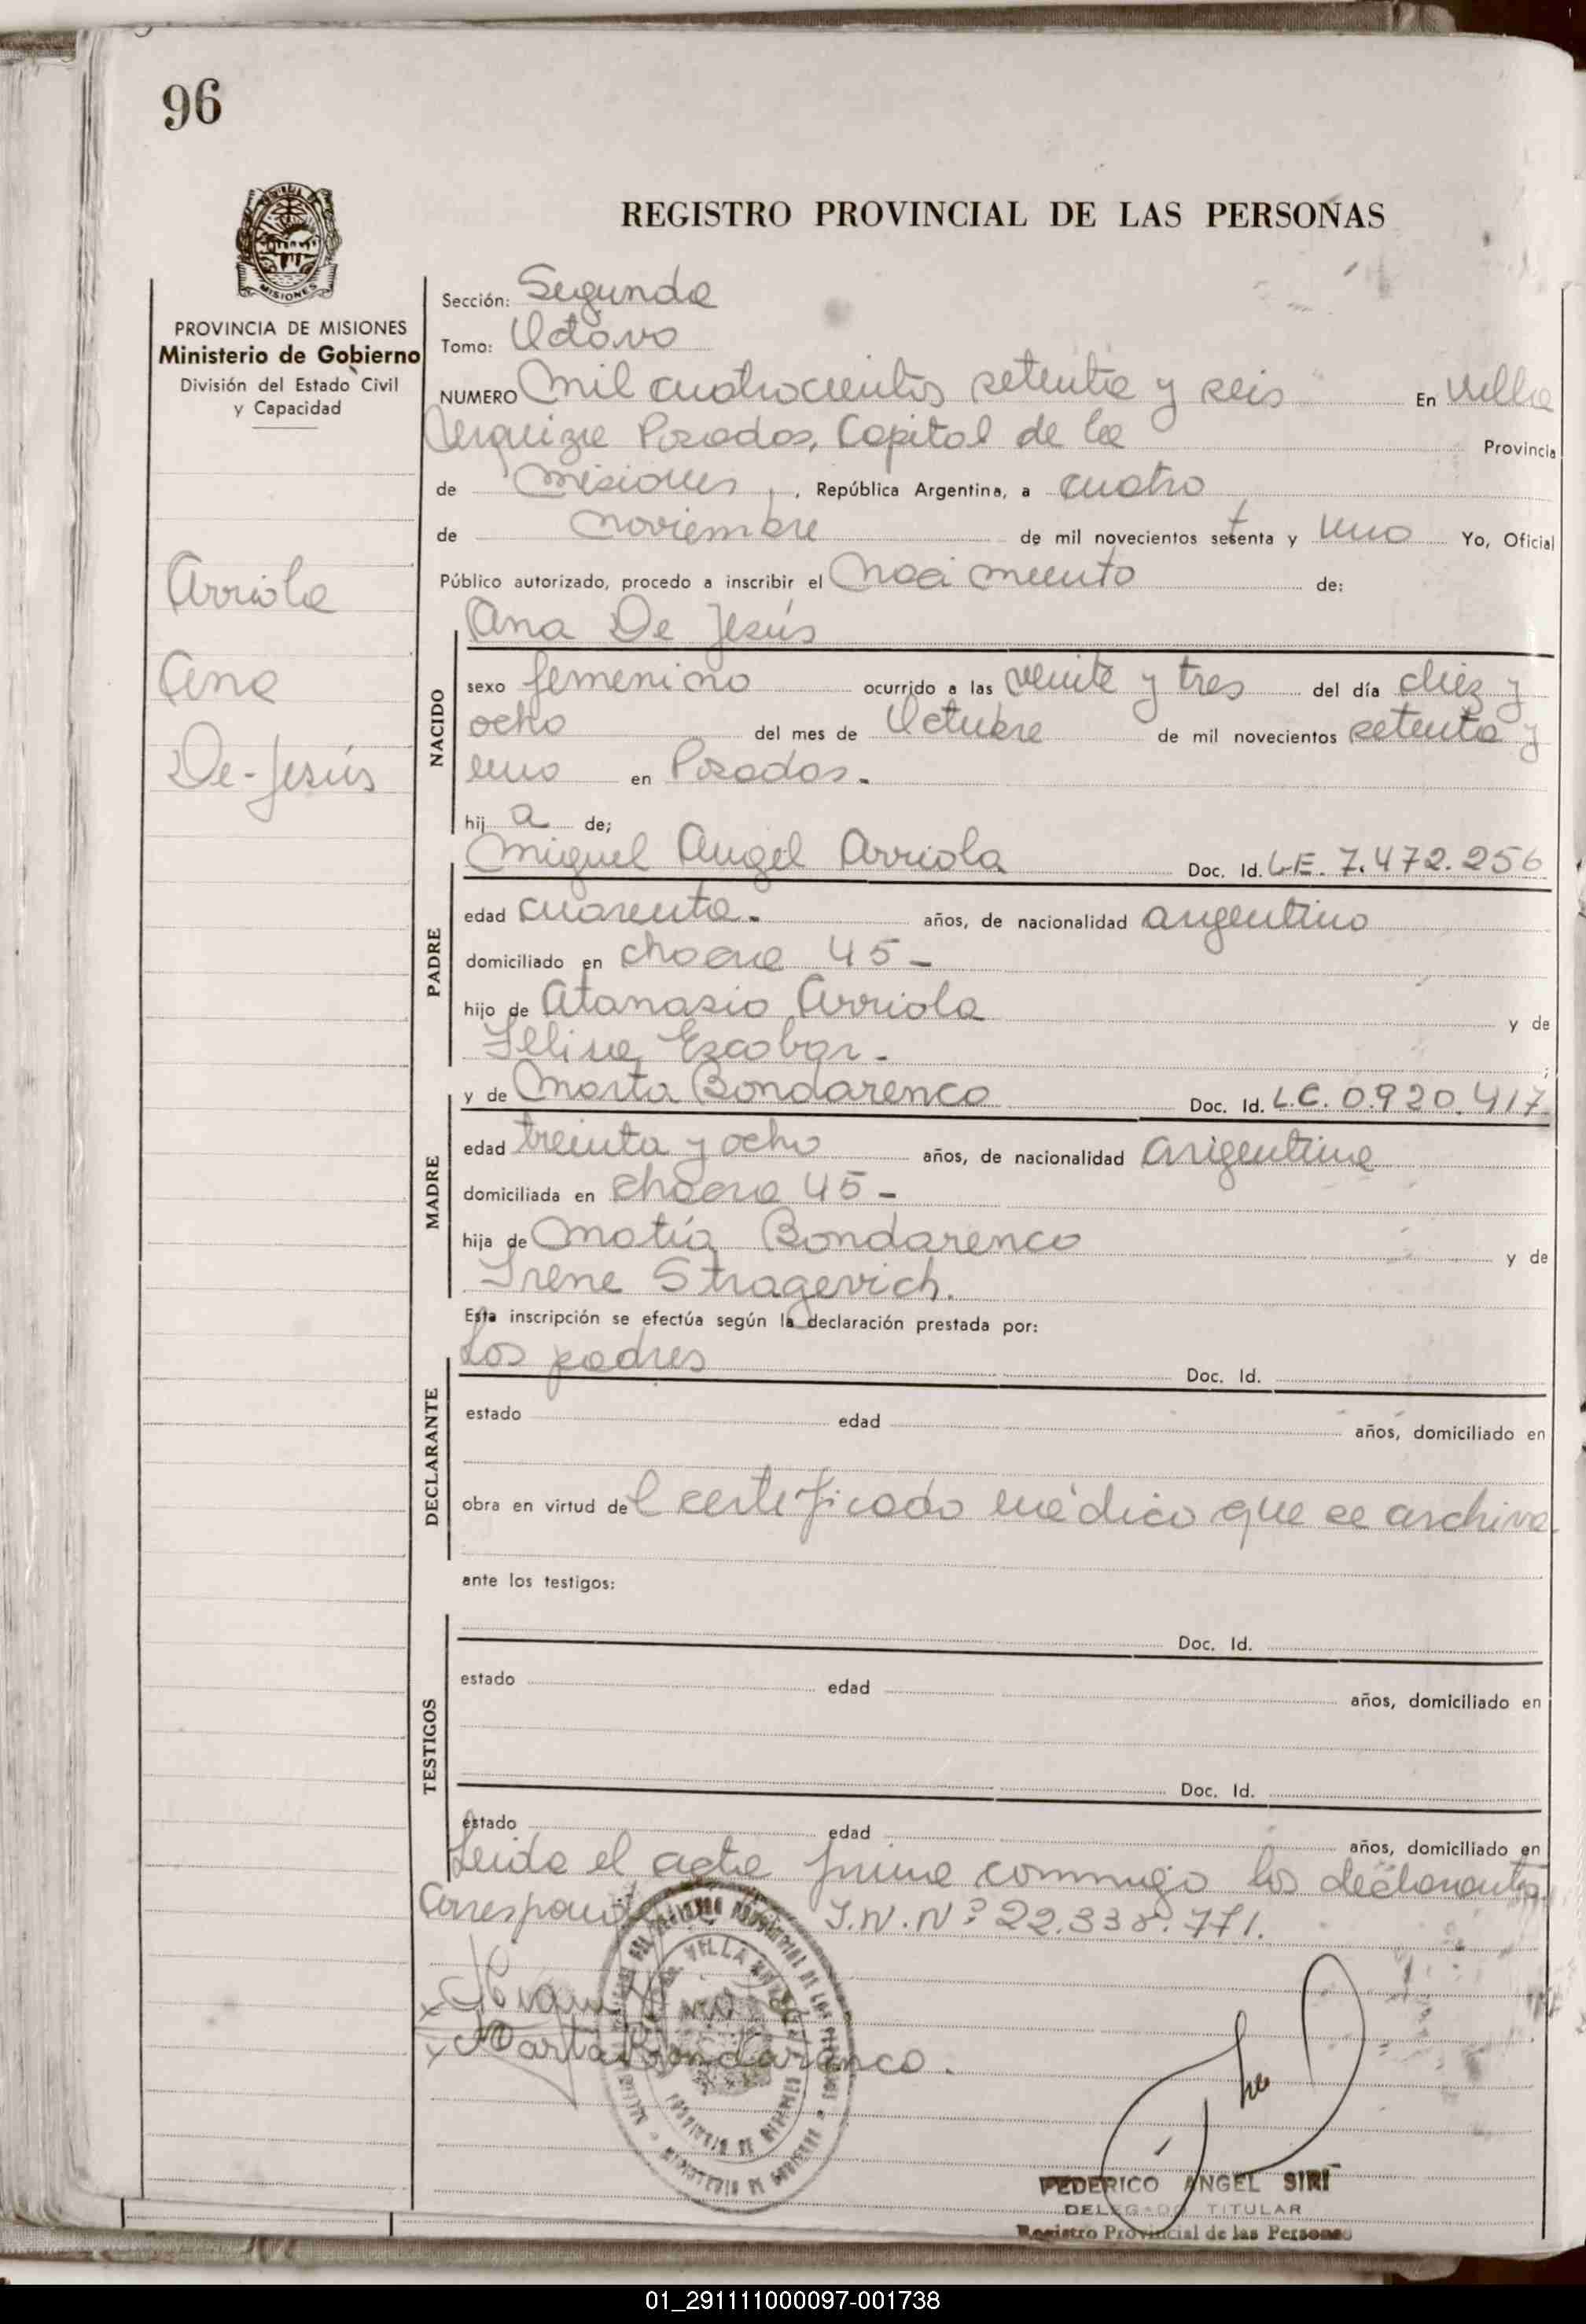 96
REGISTRO PROVINCIAL DE LAS PERSONAS
MISIONES
PROVINCIA DE MISIONES
Ministerio de Gobierno
División del Estado Civil
y Capacidad
Arriola
Ana
De-Jesús
Sección: Segunda
Tomo: Octavo
NUMERO Mil cuatrocientos setenta y seis En Villa
Urquiza Posadas, Capital de la Provincia
de Misiones, República Argentina, a cuatro
de noviembre de mil novecientos setenta y uno Yo, Oficial
Público autorizado, procedo a inscribir el Nacimiento de:
Ana De Jesús
NACIDO
sexo femenino ocurrido a las veinte y tres del día diez y
ocho del mes de Octubre de mil novecientos setenta y
uno en Posadas.
hij a de;
Miguel Angel Arriola Doc. Id. L.E. 7.472.256
PADRE
edad cuarenta. años, de nacionalidad argentino
domiciliado en chacra 45-
hijo de Atanasio Arriola y de
Escobar.
y de Marta Bondarenco Doc. Id. L.C. 0.920.417
MADRE
edad treinta y ocho años, de nacionalidad argentina
domiciliada en chacra 45-
hija de Matía Bondarenco y de
Irene Stragevich.
Esta inscripción se efectúa según la declaración prestada por:
Los padres Doc. Id.
DECLARANTE
estado edad años, domiciliado en
obra en virtud del certificado médico que se archiva
ante los testigos:
TESTIGOS
Doc. Id.
estado edad años, domiciliado en
Doc. Id.
estado edad años, domiciliado en
Leida el acta firma conmigo los declarantes
Corresponde I.N.Nº 22.338.771.
Marta Bondarenco.
FEDERICO ANGEL SIRI
DELEGADO TITULAR
Registro Provincial de las Personas
01_291111000097-001738